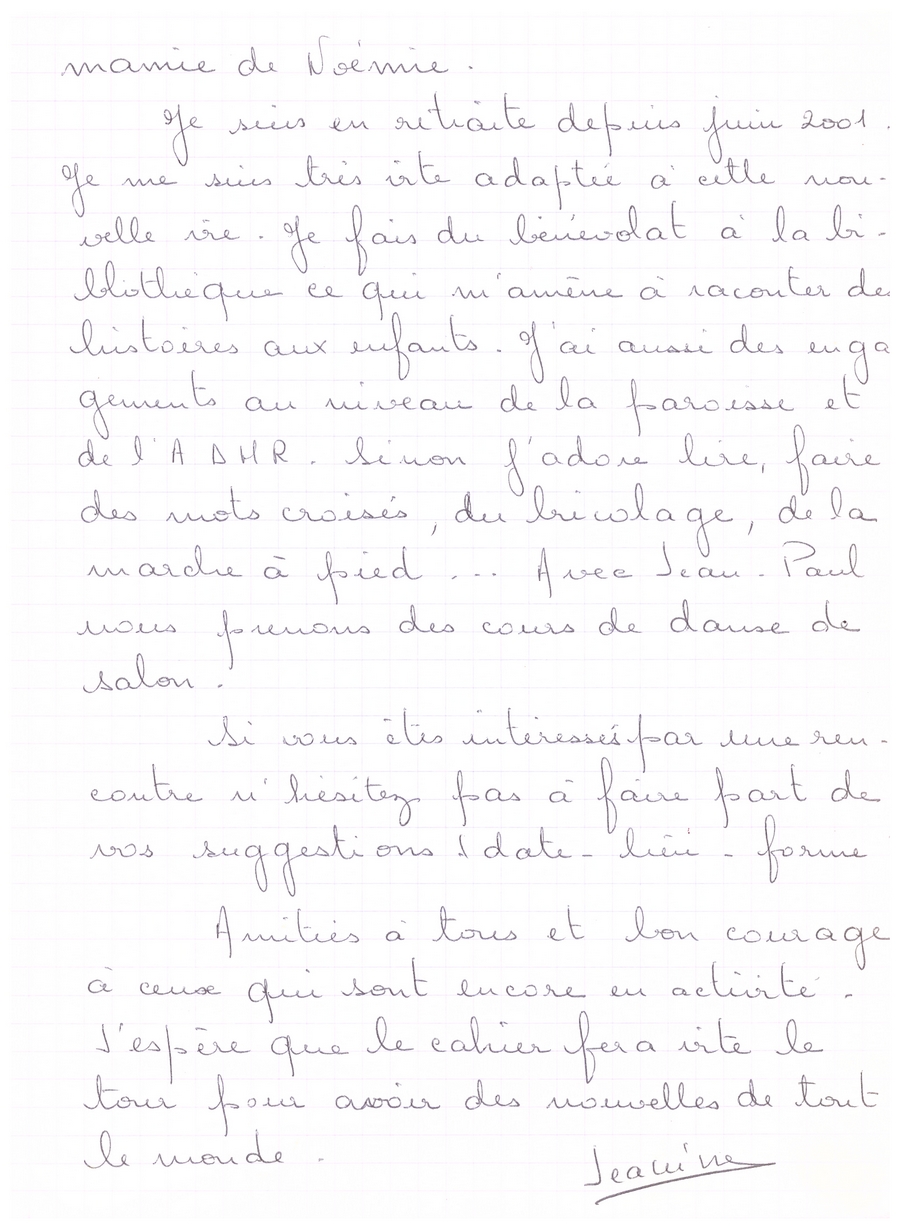 mamie de Noémie.
Je suis en retraite depuis juin 2001.
Je me suis très vite adaptée à cette nou-
velle vie. Je fais du bénévolat à la bi-
bliothèque ce qui m'amène à raconter des
histoires aux enfants. J'ai aussi des enga
gements au niveau de la paroisse et
de l'ADMR. Sinon j'adore lire, faire
des mots croisés, du bricolage, de la
marche à pied ... Avec Jean-Paul
nous prenons des cours de danse de
salon.
Si vous êtes intéressés par une ren-
contre n'hésitez pas à faire part de
vos suggestions (date - lieu - forme
Amitiés à tous et bon courage
à ceux qui sont encore en activité.
J'espère que le cahier fera vite le
tour pour avoir des nouvelles de tout
le monde.
Jeanine